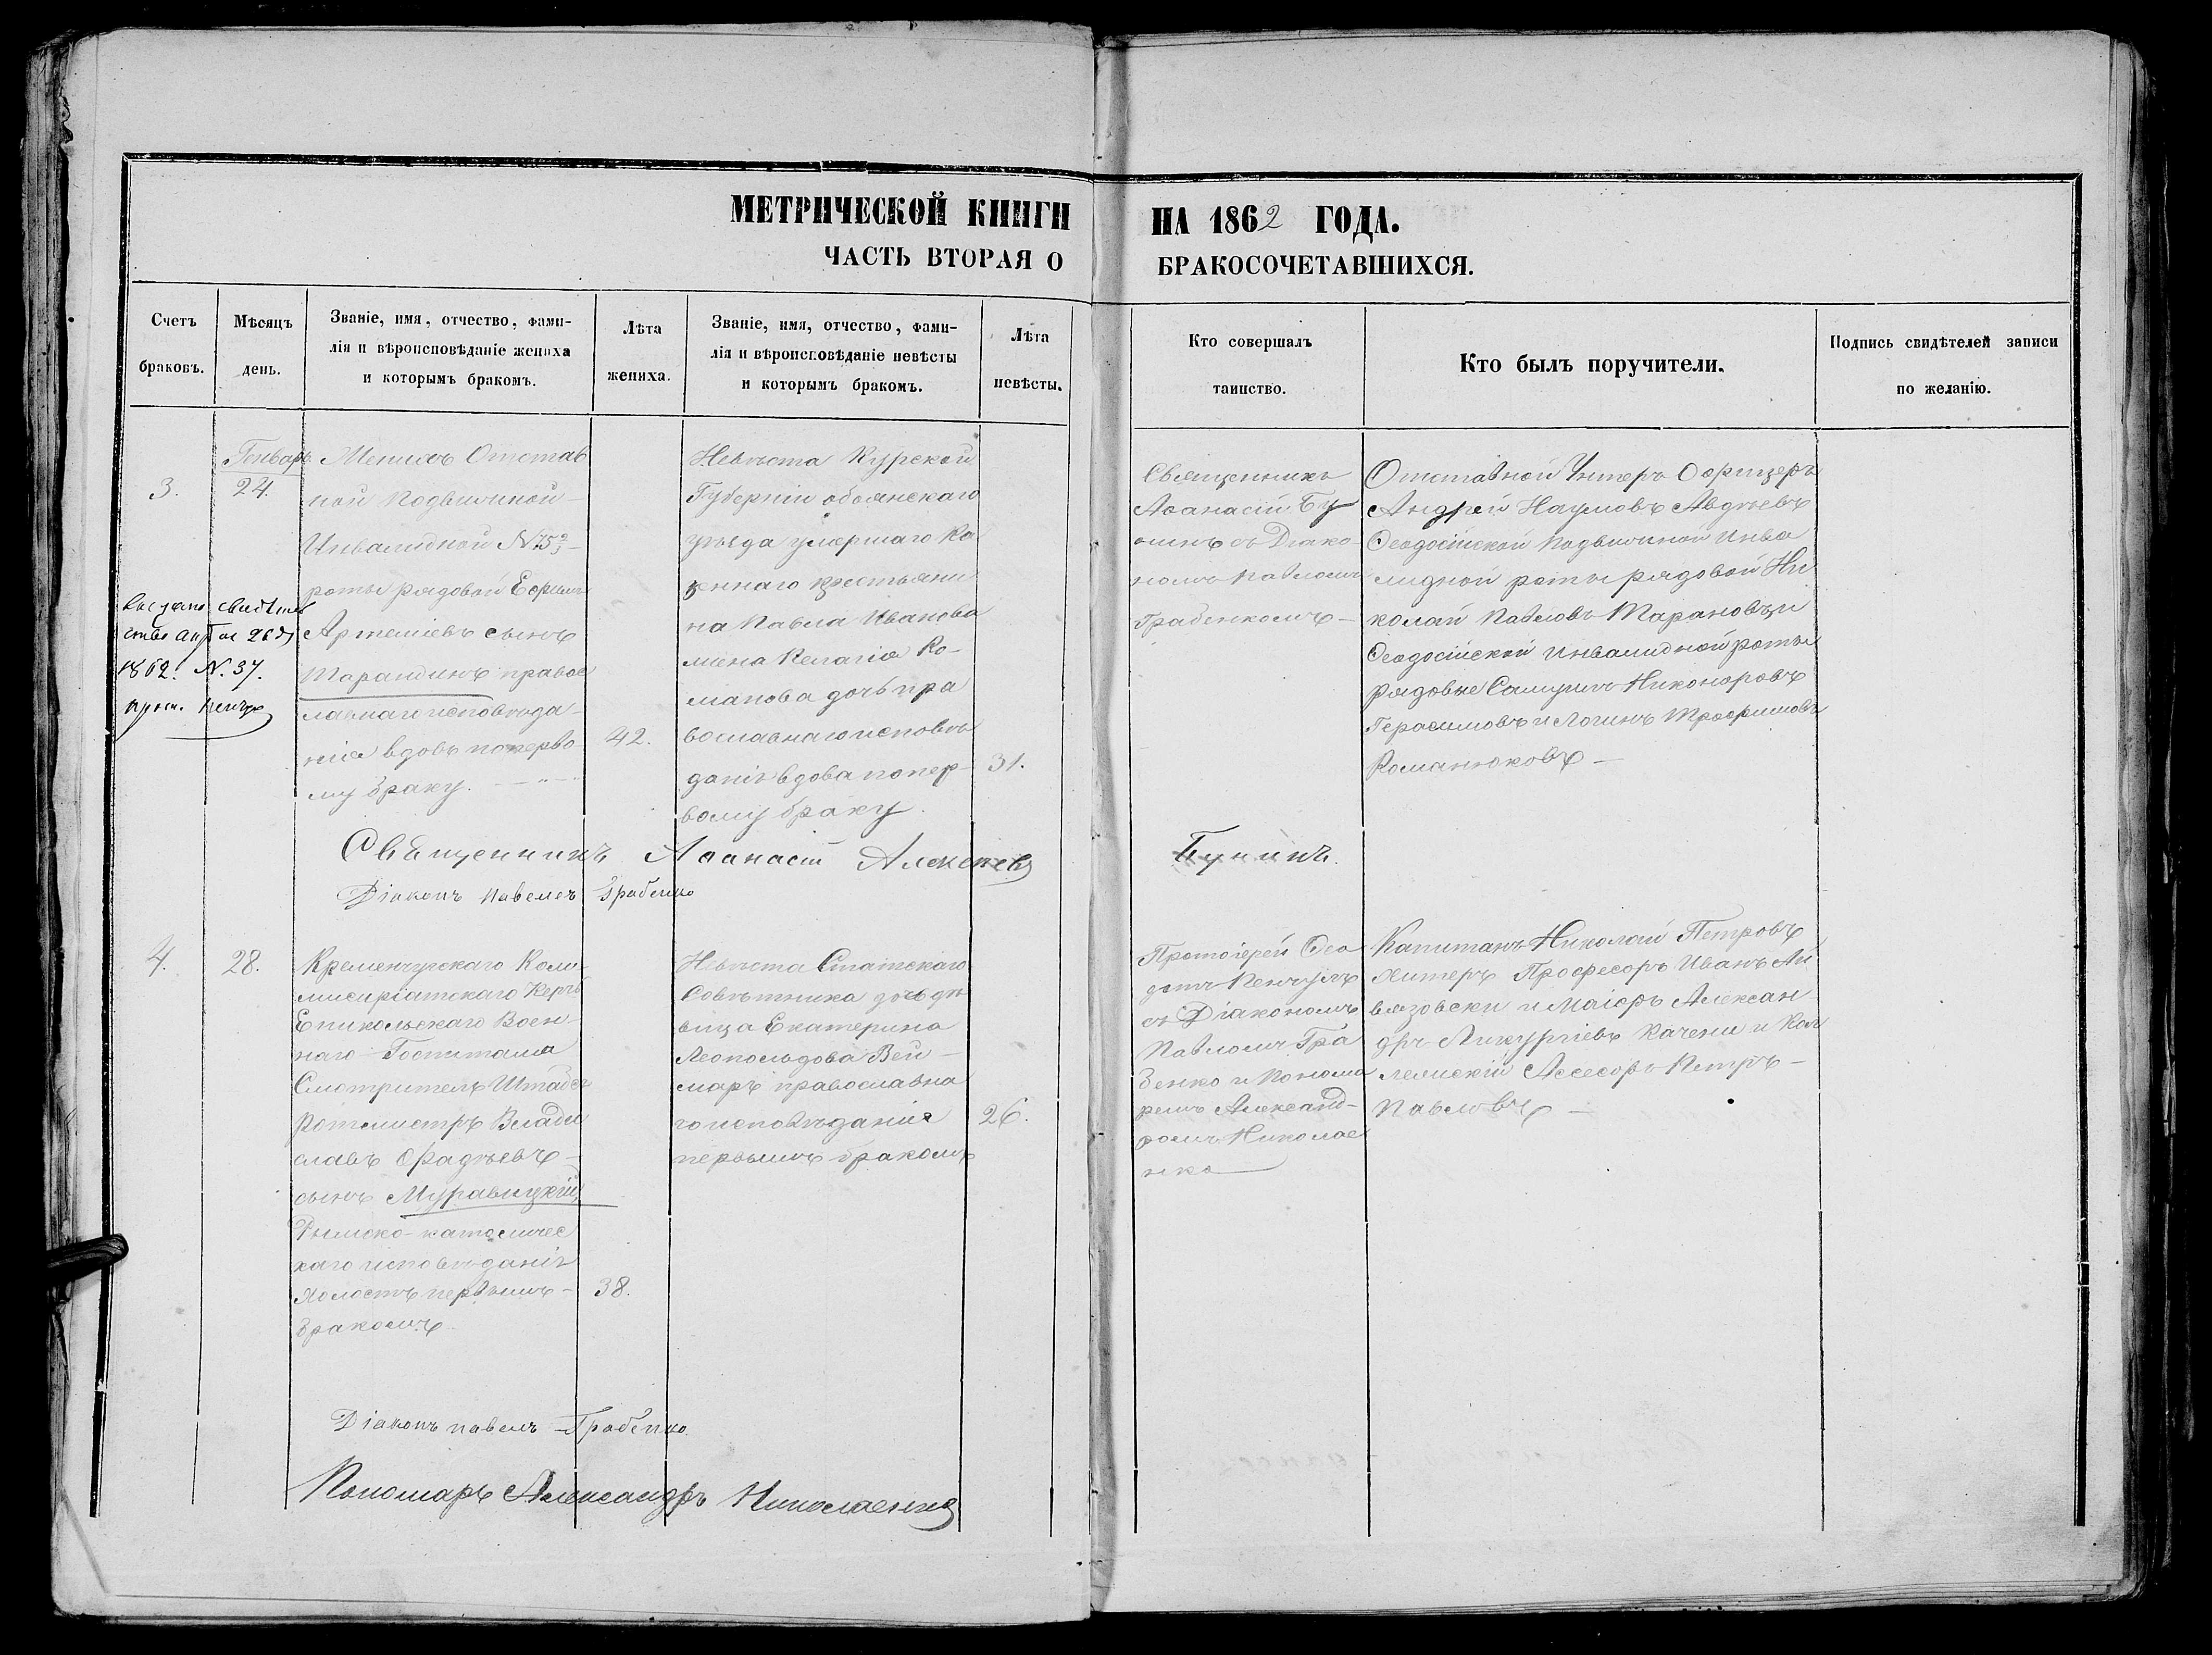 МЕТРИЧЕСКОЙ КНИГИ
НА 1862 ГОДА.
ЧАСТЬ ВТОРАЯ О
БРАКОСОЧЕТАВШИХСЯ.
Счетъ
браковъ.
Мѣсяцъ
день.
Званіе, имя, отчество, фами-
лія и вѣроисповѣданіе жениха
и которымъ бракомъ.
Лѣта
жениха.
Званіе, имя, отчество, фами-
лія и вѣроисповѣданіе невѣсты
и которымъ бракомъ.
Лѣта
невѣсты.
Кто совершалъ
таинство.
Кто былъ поручители.
Подпись свидѣтелей записи
по желанію.
3.
Генварь
24.
1862. N. 37.
Женихъ Отстав
ной подвижной
Инвалидной
роты рядовой Ефимъ
Артеміевъ сынъ
Тарандинъ правос
лавнаго исповѣда-
нія вдовъ по перво
му браку.
42.
Невѣста Курской
Губерніи обоянскаго
уѣзда умершаго Ка
зеннаго крестьяни
на Павла Иванова
жена Пелагія Ро-
манова дочь пра
вославнаго исповѣ
данія вдова по пер-
вому браку.
31.
Священникъ
Аѳанасій Бу
нинъ съ Діако-
номъ Павломъ
Грабенкомъ
Отставной Унтеръ Офицеръ
Андрей Наумовъ Авдѣевъ
Ѳеодосійской подвижной Инва
лидной роты рядовой Ни
колай Павловъ Тарановъ и
Ѳеодосійской Инвалидной роты
рядовые Самуилъ Никоноровъ
Герасимовъ и Логинъ Трофимовъ
Романюковъ
Священникъ Аѳанасій Алексѣевъ Бунинъ.
Діаконъ Павелъ Грабенко
4.
28.
Кременчугскаго Коми
мисиріатскаго Керчь
Еникольскаго Воен-
наго Госпиталя
Смотритель Штабсъ
Ротмистръ Влади
славъ Фадѣевъ
сынъ Муравицкій,
Римско-католичес
каго исповѣданія
холостъ первымъ
бракомъ.
38.
Невѣста Статскаго
Совѣтника дочь дѣ
вица Екатерина
Леопольдова Вей-
маръ православна
го исповѣданія
первымъ бракомъ
26.
Протоіерей Ѳео
съ Діакономъ
Павломъ Гра
бенко и Понома
ремъ Александ-
ромъ Николае
нко
Капитанъ Николай Петровъ
Профессоръ Иванъ Ай
вазовски и Маіоръ Алексан
дръ Ликургіевъ Качени и Кол
лежскій Ассесоръ Петръ
Павловъ
Діаконъ Павелъ Грабенко.
Пономарь Александръ Николаенко